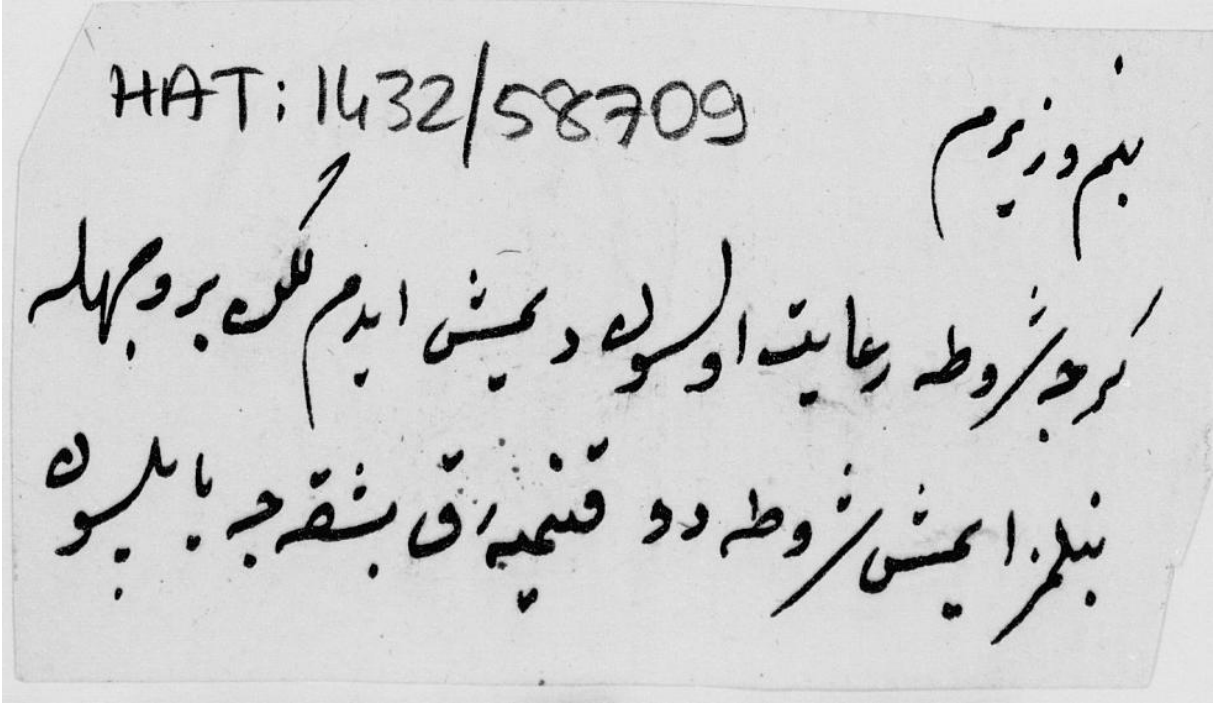 HAT: 1432/58709
بنم وزیرم
كرجه شروطه رعایت اولسون دیمش ایدم لكن بر وجهله
بیلمز ایمش شروطه دو قنمیه رق بشقه جه یاپلسون